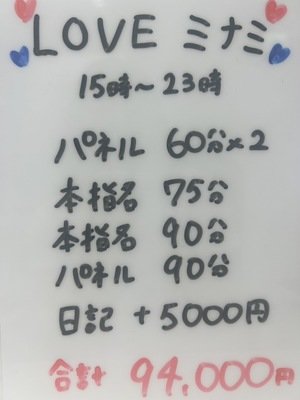 LOVE ミナミ
15時～23時
パネル 60分×2
本指名 75分
本指名 90分
パネル 90分
日記 +5000円
合計 94,000円